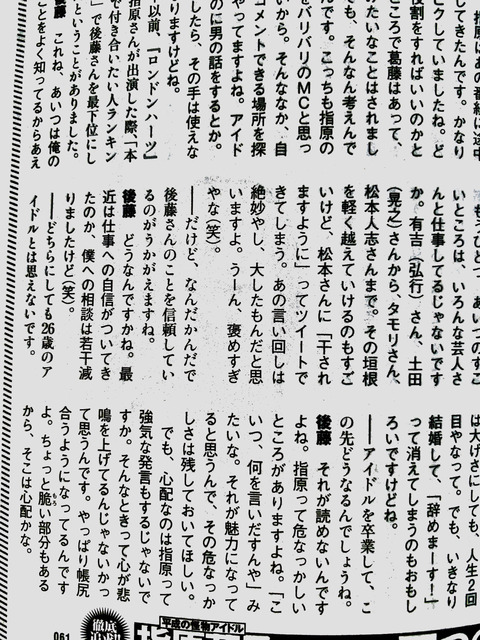 指原はあの番組に途中
してきたんです。かなり
ビクしていましたね。ど
役割をすればいいのかと
ところで葛藤はあって、
みたいなことはされまし
でも、そんなん考えんで
んです。こっちも指原の
をバリバリのMCと思っ
いから。そんななか、自
コメントできる場所を探
やってますよね。アイド
のに男の話をするとか。
したら、その手は使えな
りますけどね。
以前、『ロンドンハーツ』
指原さんが出演した際、「本
で付き合いたい人ランキン
」で後藤さんを最下位にし
ということがありました。
後藤　これね、あいつは俺の
ことをよく知ってるからあえ
もうひとつ、あいつのすご
いところは、いろんな芸人さ
んと仕事してるじゃないです
か。有吉(弘行)さん、土田
(晃之)さんから、タモリさん、
松本人志さんまで。その垣根
を軽く越えていけるのもすご
いけど、松本さんに「干され
ますように」ってツイートで
きてしまう。あの言い回しは
絶妙やし、大したもんだと思
いますよ。うーん、褒めすぎ
やな(笑)。
――だけど、なんだかんだで
後藤さんのことを信頼してい
るのがうかがえますね。
後藤　どうなんですかね。最
近は仕事への自信がついてき
たのか、僕への相談は若干減
りましたけど(笑)。
――どちらにしても26歳のア
イドルとは思えないです。
は大げさにしても、人生2回
目やなって。でも、いきなり
結婚して、「辞めまーす！」
って消えてしまうのもおもし
ろいですけどね。
――アイドルを卒業して、こ
の先どうなるんでしょうね。
後藤　それが読めないんです
よね。指原って危なっかしい
ところがありますよね。「こ
いつ、何を言いだすんや」み
たいな。それが魅力になって
ると思うんで、その危なっか
しさは残しておいてほしい。
でも、心配なのは指原って
強気な発言もするじゃないで
すか。そんなときって心が悲
鳴を上げてるんじゃないかっ
て思うんです。やっぱり帳尻
合うようになってるんです
よ。ちょっと脆い部分もある
から、そこは心配かな。
平成の怪物アイドル
徹底
061